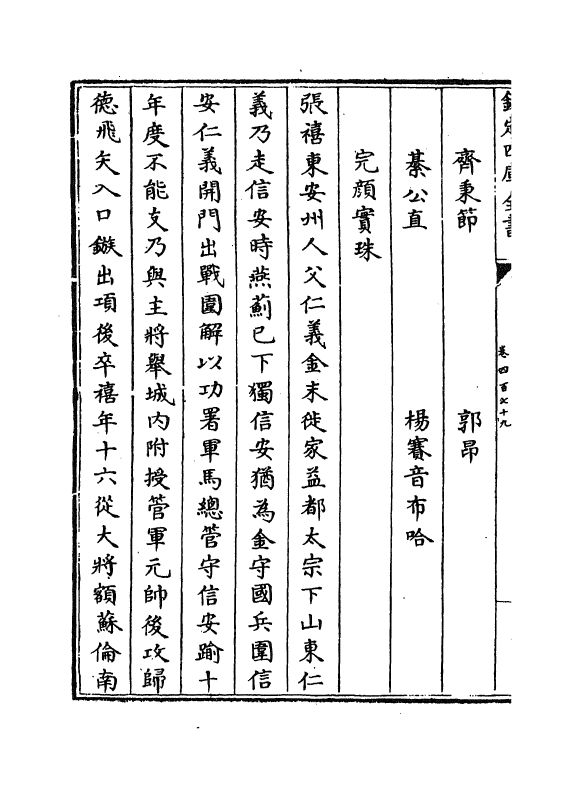 欽定四庫全書
卷四百七十九
齊秉節　郭昂
綦公直　楊賽音布哈
完顔實珠
張禧東安州人父仁義金末徙家益都太宗下山東仁
義乃走信安時燕薊已下獨信安猶為金守國兵圍信
安仁義開門出戰圍解以功署軍馬總管守信安踰十
年度不能支乃與主將舉城内附授管軍元帥後攻歸
德飛矢入口鏃出項後卒禧年十六從大將額蘇倫南